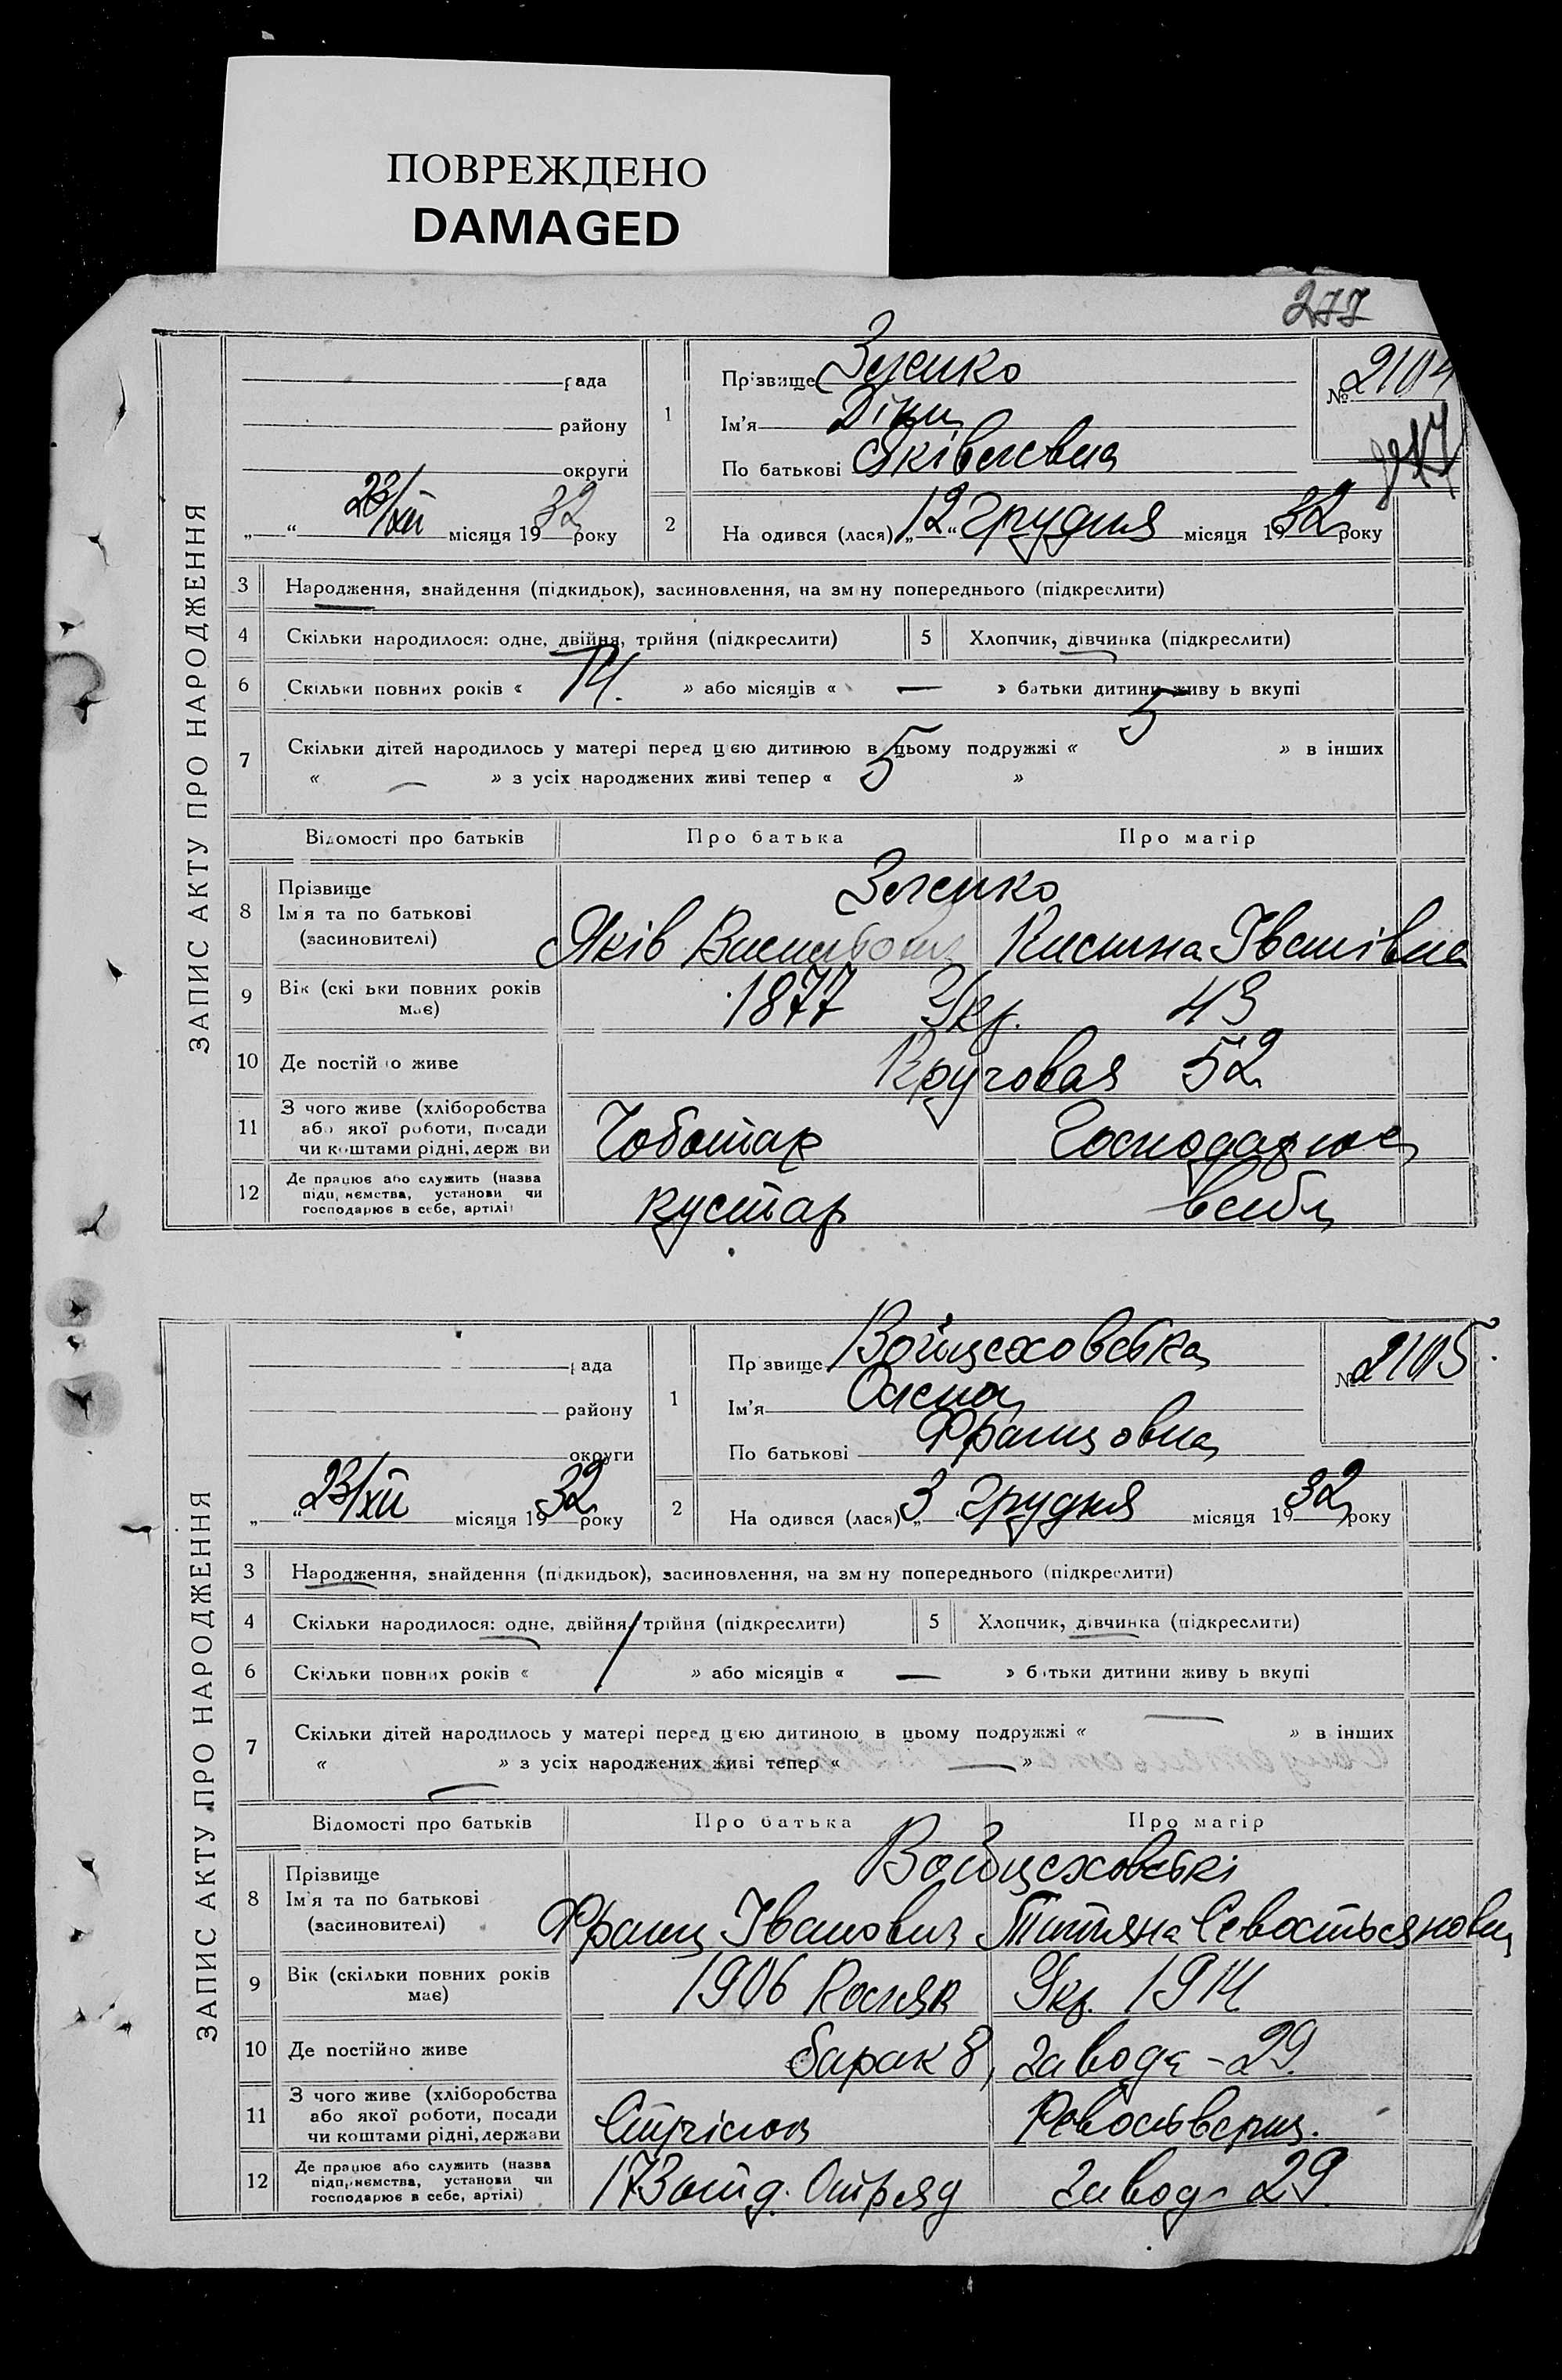 ПОВРЕЖДЕНО
DAMAGED
277
ЗАПИС АКТУ ПРО НАРОДЖЕННЯ
рада
району
округи
„ “ 23/XII місяця 1932 року
1
Прізвище
Ім'я
По батькові
№ 2104
2
На одився (лася) „12“ Грудня місяця 1932 року
3 Народження, знайдення (підкидьок), засиновлення, на зм ну попереднього (підкреслити)
4 Скільки народилося: одне, двійня, трійня (підкреслити) 5 Хлопчик, дівчинка (підкреслити)
6 Скільки повних років « 14. » або місяців « — » батьки дитини живу ь вкупі
7 Скільки дітей народилось у матері перед цією дитиною в цьому подружжі « 5 » в інших
« — » з усіх народжених живі тепер « 5 »
Відомості про батьків Про батька Про матір
8 Прізвище
Ім'я та по батькові
(засиновителі)
Яків Іванівна
9 Вік (скі ьки повних років
має)
1877 Укр. 43
10 Де постій о живе Круговая 52
11 З чого живе (хліборобства
або якої роботи, посади
чи коштами рідні, держ ви
Чоботар
12 Де працює або служить (назва
підп, иємства, установи чи
господарює в себе, артілі)
кустар
ЗАПИС АКТУ ПРО НАРОДЖЕННЯ
рада
району
округи
„ “ 23/XII місяця 1932 року
1
Пр звище Войцеховська
Ім'я Олена
По батькові Францовна
№ 2105
2
На одився (лася) „3 Грудня місяця 1932 року
3 Народження, знайдення (підкидьок), засиновлення, на зм ну попереднього (підкреслити)
4 Скільки народилося: одне, двійня, трійня (підкреслити) 5 Хлопчик, дівчинка (підкреслити)
6 Скільки повних років « 1 » або місяців « — » б тьки дитини живу ь вкупі
7 Скільки дітей народилось у матері перед цією дитиною в цьому подружжі « — » в інших
« — » з усіх народжених живі тепер « — »
Відомості про батьків Про батька Про матір
8 Прізвище
Ім'я та по батькові
(засиновителі)
Войцеховські
Франц Іванович Татяна
9 Вік (скільки повних років
має)
1906 Поляк Укр. 1914
10 Де постійно живе барак 8, завода - 29.
11 З чого живе (хліборобства
або якої роботи, посади
чи коштами рідні, держави
Стрілок
12 Де працює або служить (назва
підприємства, установи чи
господарює в себе, артілі)
173 отд. Отряд завод - 29.